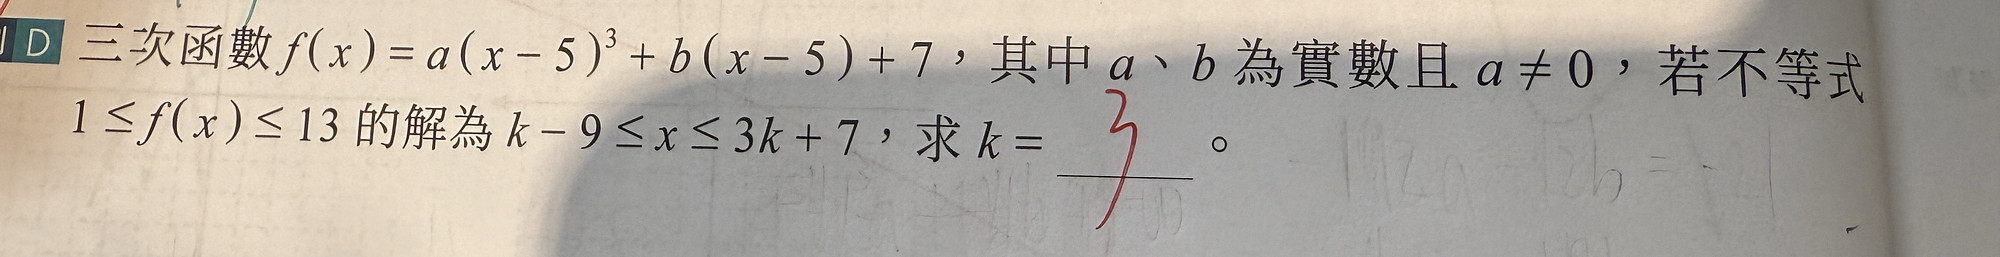 D 三次函數 f(x) = a(x − 5)³ + b(x − 5) + 7，其中 a、b 為實數且 a ≠ 0，若不等式
1 ≤ f(x) ≤ 13 的解為 k − 9 ≤ x ≤ 3k + 7，求 k = 3 。